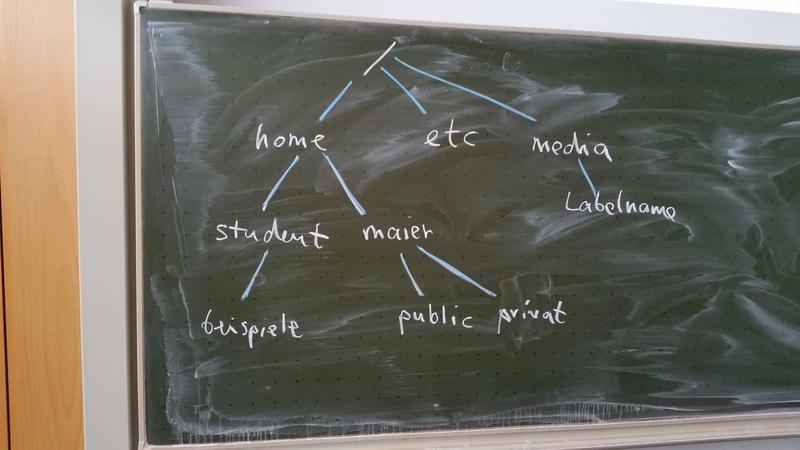 /
home etc media
Labelname
student maier
beispiele public privat